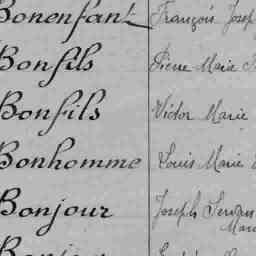 Bonenfant François Josep
Bonfils Pierre Marie
Bonfils Victor Marie
Bonhomme Louis Marie
Bonjour Joseph Servan
Mari